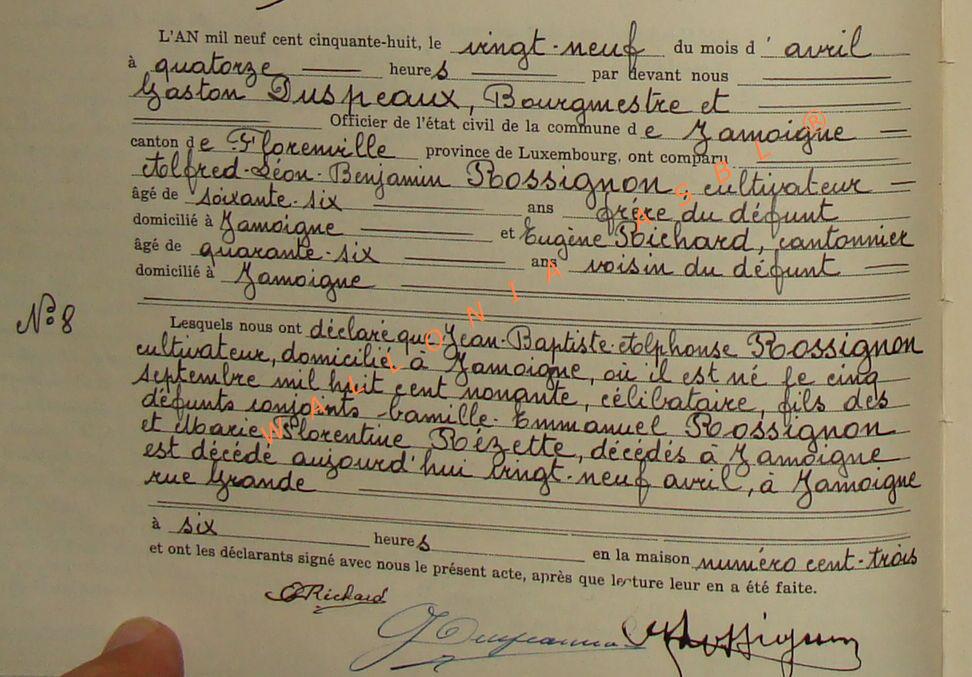 L'AN mil neuf cent cinquante-huit, le vingt-neuf du mois d' avril
à quatorze heures par devant nous
Gaston Duspeaux, Bourgmestre et
Officier de l'état civil de la commune de Jamoigne
canton de Florenville province de Luxembourg, ont comparu
Alfred-Léon-Benjamin Rossignon, cultivateur
âgé de soixante-six ans frére du défunt
domicilié à Jamoigne et Eugène Richard, cantonnier
âgé de quarante-six ans voisin du défunt
domicilié à Jamoigne
N° 8
Lesquels nous ont déclaré que Jean-Baptiste-Alphonse Rossignon
cultivateur, domicilié à Jamoigne, où il est né le cinq
septembre mil huit cent nonante, célibataire, fils des
défunts conjoints Camille-Emmanuel Rossignon
et Marie Florentine Rézette, décédés à Jamoigne
est décédé aujourd'hui vingt-neuf avril, à Jamoigne
rue Grande
à six heures en la maison numéro cent-trois
et ont les déclarants signé avec nous le présent acte, après que lecture leur en a été faite.
ERichard
GDuspeaux Rossignon
WALLONIA ASBL ®